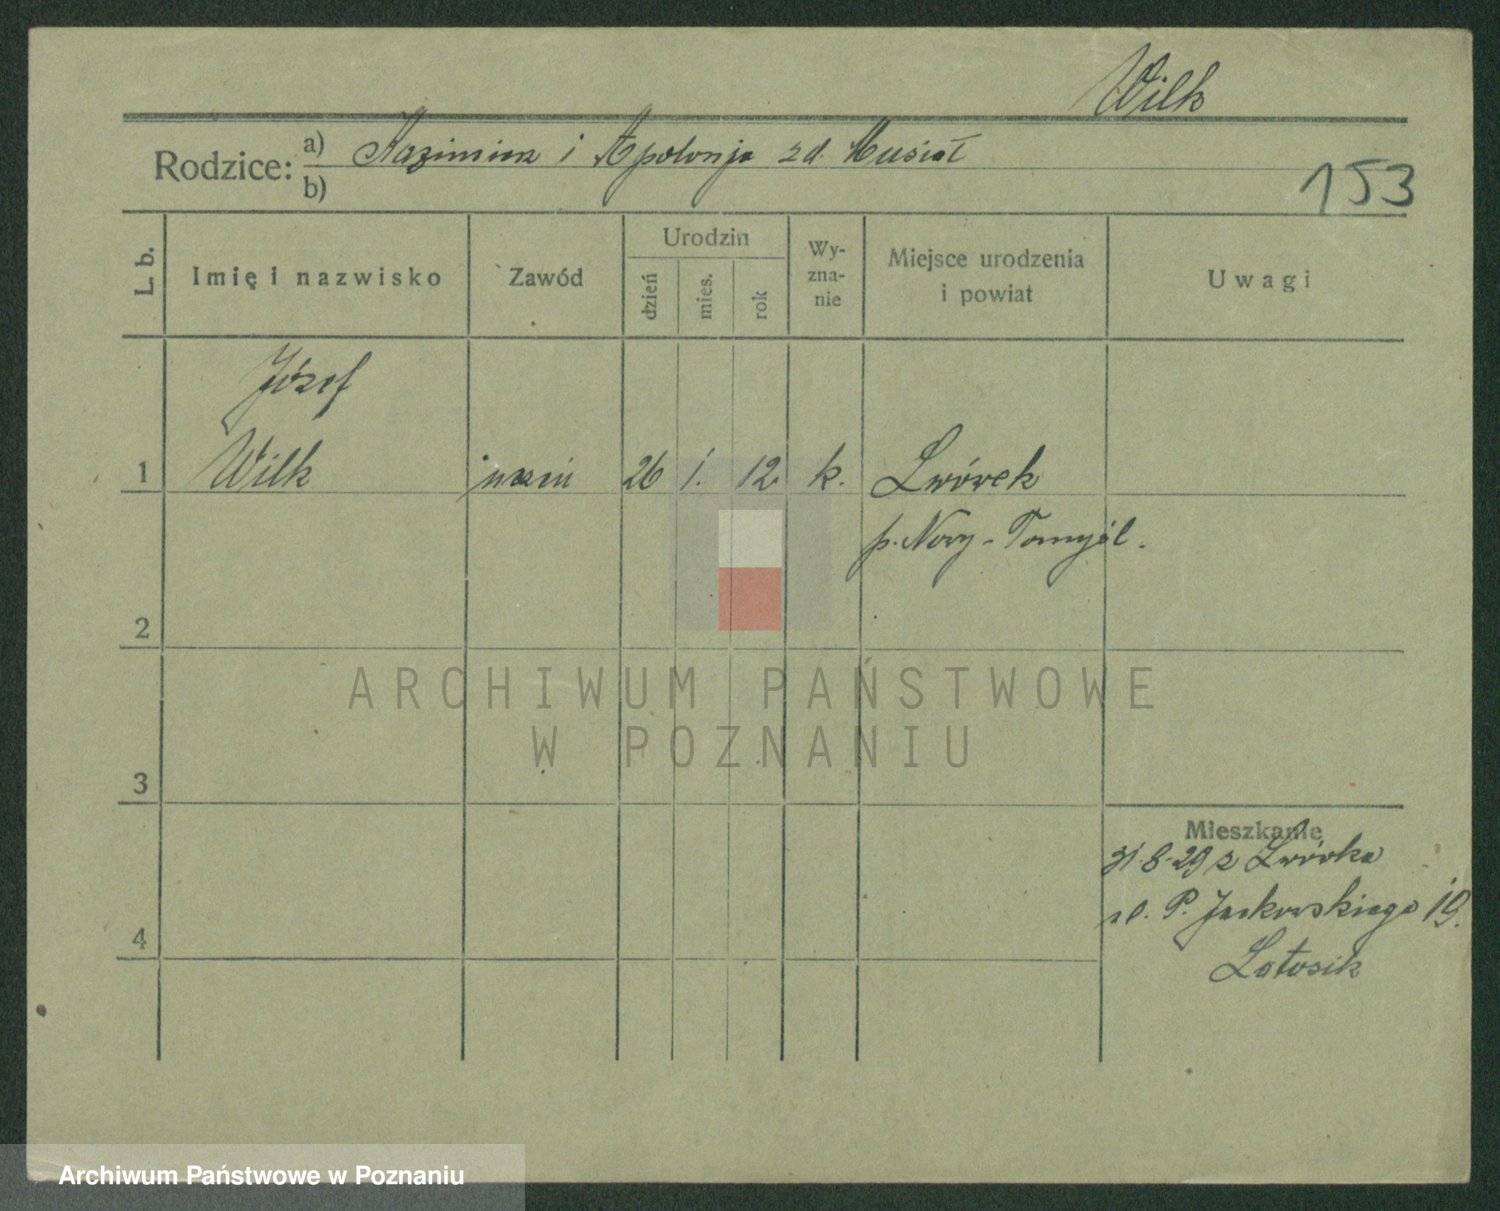 Wilk
Rodzice: a) Kazimierz i Apolonja zd. Musiał
b)
153
L. b.
Imię i nazwisko
Zawód
Urodzin
dzień
mies.
rok
Wy-
zna-
nie
Miejsce urodzenia
i powiat
Uwagi
Józef
1 Wilk uczeń 26 1. 12 k. Lwówek
p. Nowy-Tomyśl.
2
3
4
Mieszkanie
31.8.29 z Lwówka
ul. P. Jackowskiego 19.
Latosik
ARCHIWUM PAŃSTWOWE
W POZNANIU
Archiwum Państwowe w Poznaniu